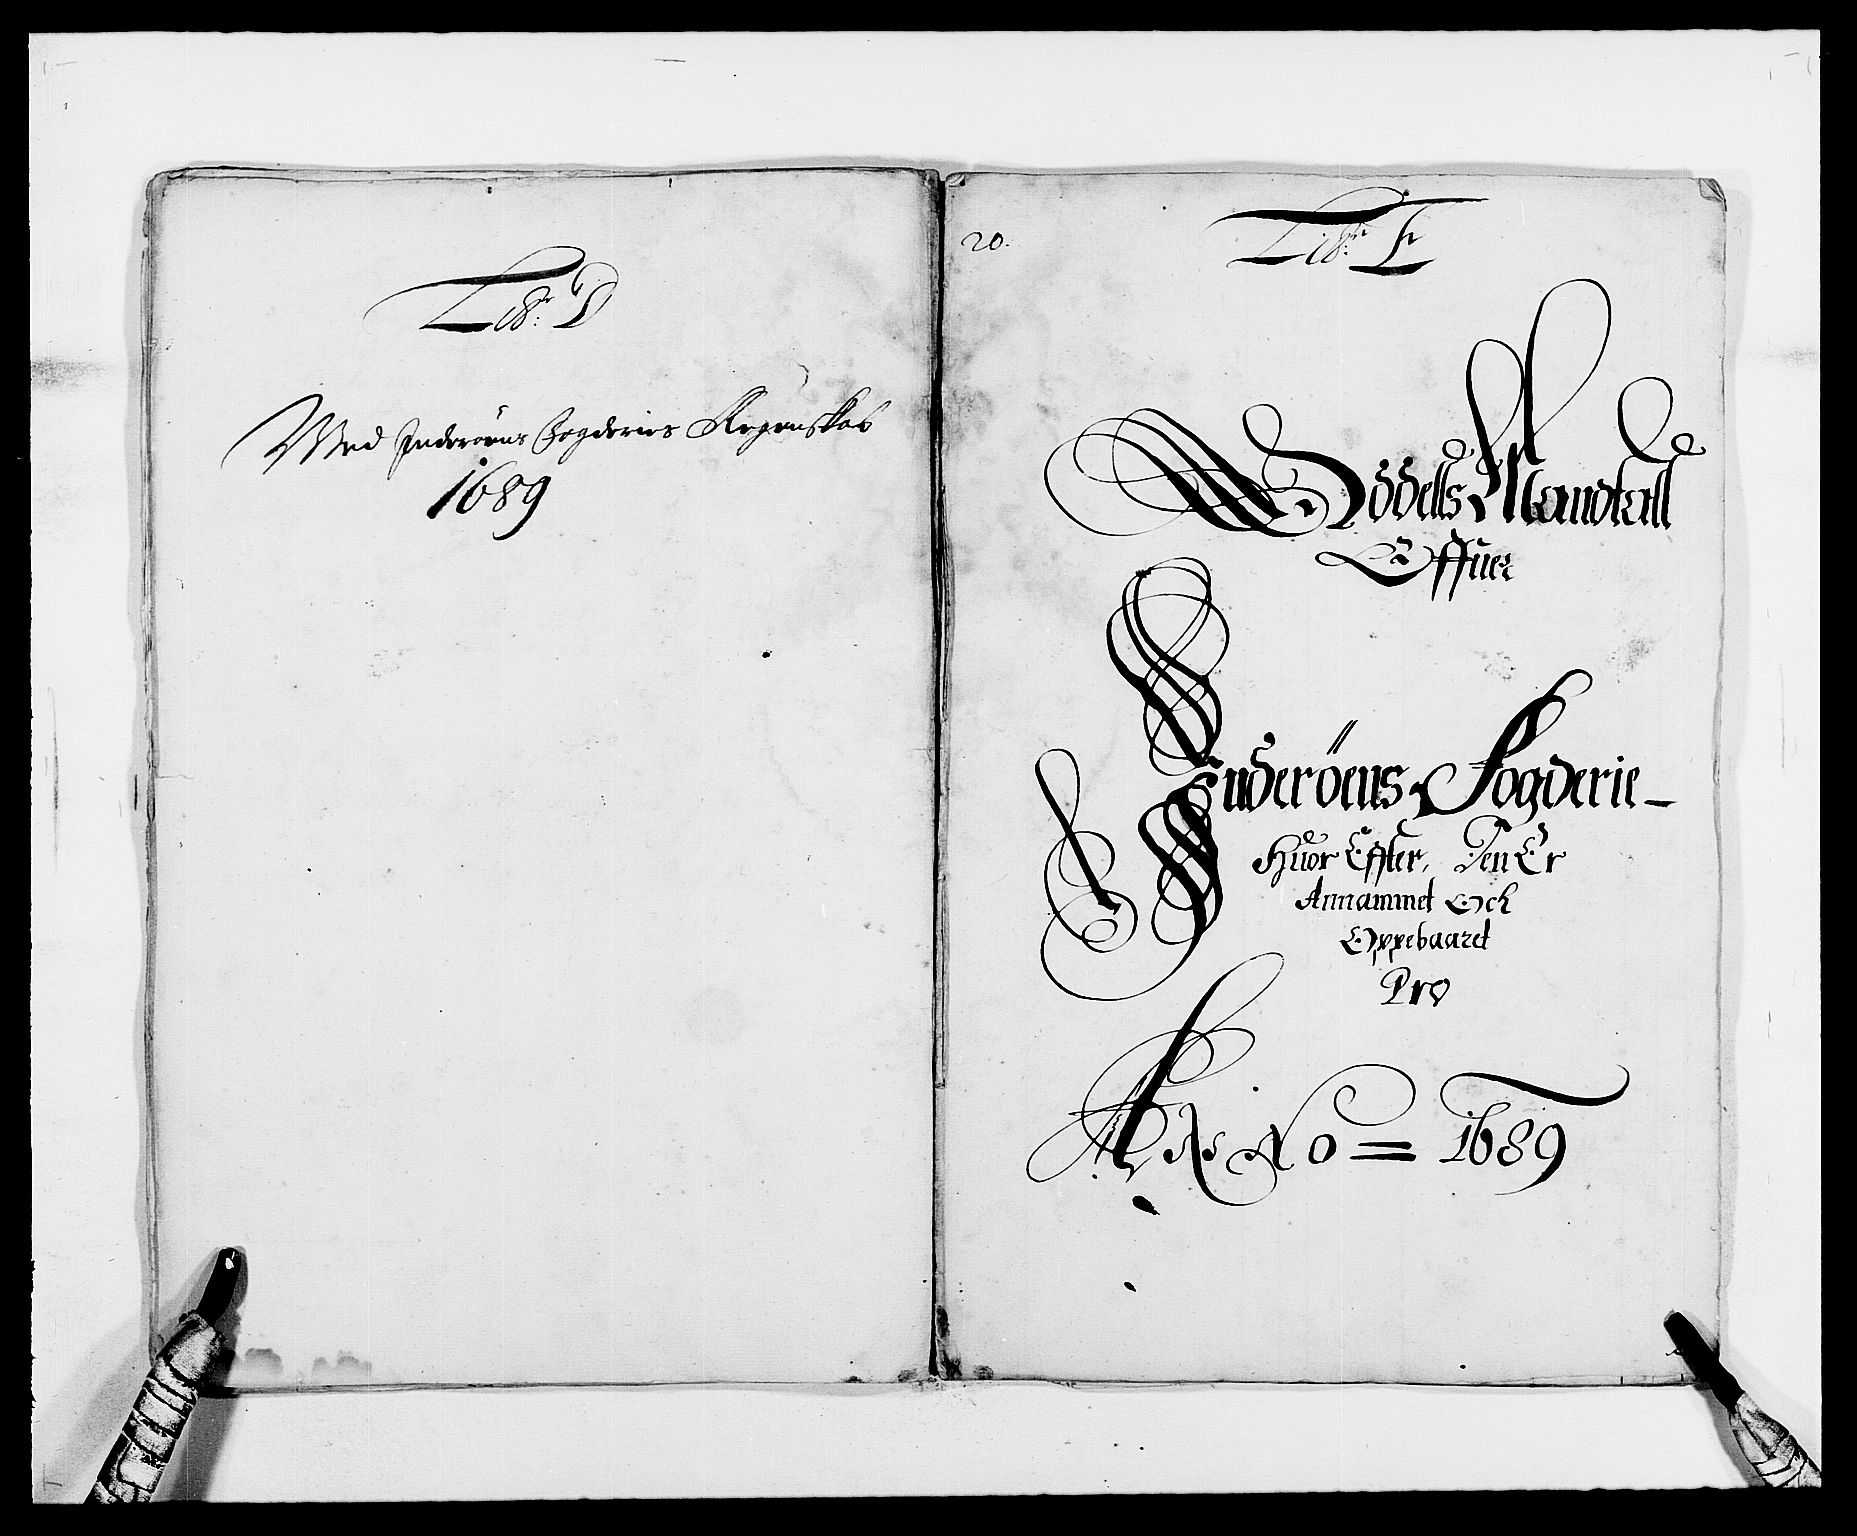 Litr: D
Wed Inderøens Fogderies Regenskab
1689
20.
Litr: E
Oddells Mandtall
Offuer
Inderöens Fogderie
Huor Effter, Den Er
Annammet Och
Oppebaaret
Pro
ANNo = 1689